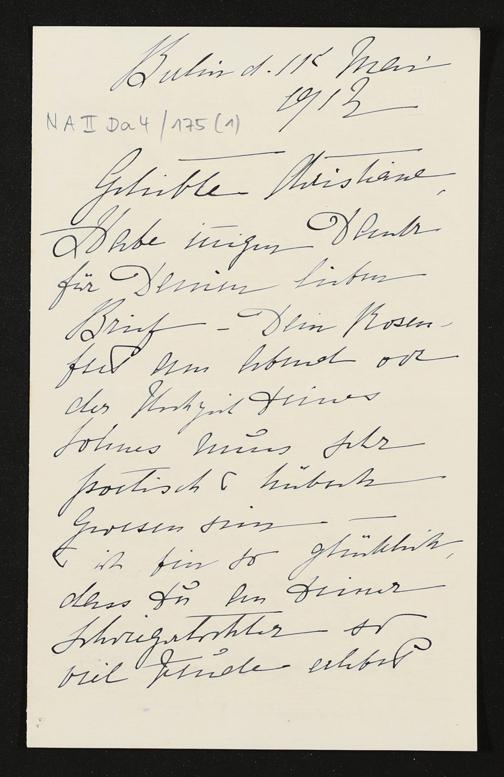 Berlin d. 11t Mai
1912
NA II Da 4 / 175 (1)
Geliebte Christiane,
Habe innigen Dank
für Deinen lieben
Brief – Dein Rosen-
fest am Abend vor
der Hochzeit Deines
Sohnes muss sehr
poetisch & hübsch
gewesen sein –
& ich bin so glücklich,
dass Du an Deiner
Schwiegertochter so
viel Freude erlebst